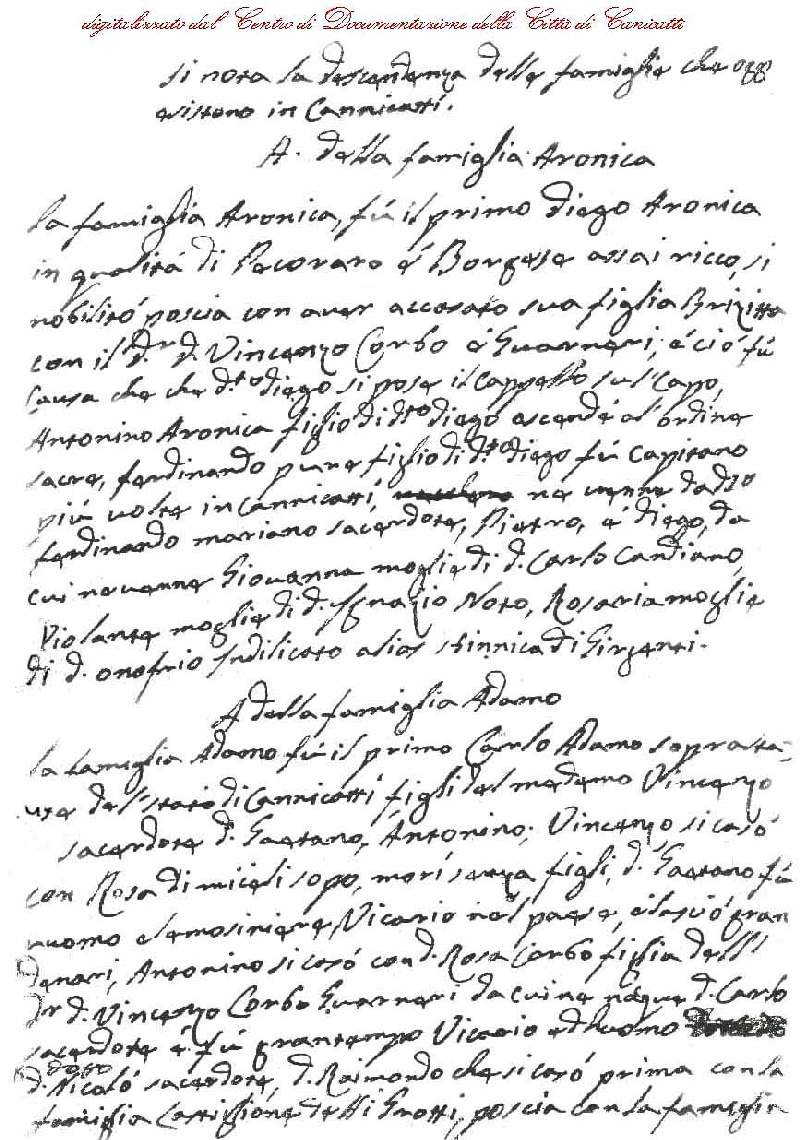 digitalizzato dal Centro di Documentazione della Città di Canicattì
si nota la descendenza delle famiglie che oggi
esistono in Cannicattì.
A. della famiglia Aronica
la famiglia Aronica, fú il primo Diego Aronica
in qualitá di Pecoraro é Borgese assai ricco, si
nobilitó poscia con aver accasato sua figlia Brizitta
con il dr d. Vincenzo Corbo é Guarneri; é ció fú
causa che che d.to diego si pose il Cappello sul Capo,
Antonino Aronica figlio di d.to diego ascende al ordine
sacre, ferdinando pure figlio di d.to diego fú Capitano
piú volte in Cannicattí, ne venne da d.to
ferdinando mariano sacerdote, Pietro, é diego, da
cui ne venne Giovanna moglie di d. Carlo Candiano,
Violante moglie di d. Ignazio Noto, Rosaria moglie
di d. onofrio Indilicato alias stinnica di Girgenti.
A della famiglia Adamo
la fameglia Adamo fú il primo Carlo Adamo sopra
dell'stato di Cannicattí figli del medemo Vincenzo
sacerdote d. Gaetano, Antonino; Vincenzo si casó
con Rosa di miceli sopo, morí senza figli, d. Gaetano fú
uuomo elemosiniere, Vicario nel paese, é lasció gran
denari, Antonino si casó con d. Rosa Corbo figlia dell'
dr d. Vincenzo Corbo Guarneri da cui ne náque d. Carlo
sacerdote é fú gran tempo Vicario ed huomo
d. Nicoló sacerdote, d. Raimondo che si casó prima con la
famiglia Castiglione delli Grotti, poscia con la fameglia